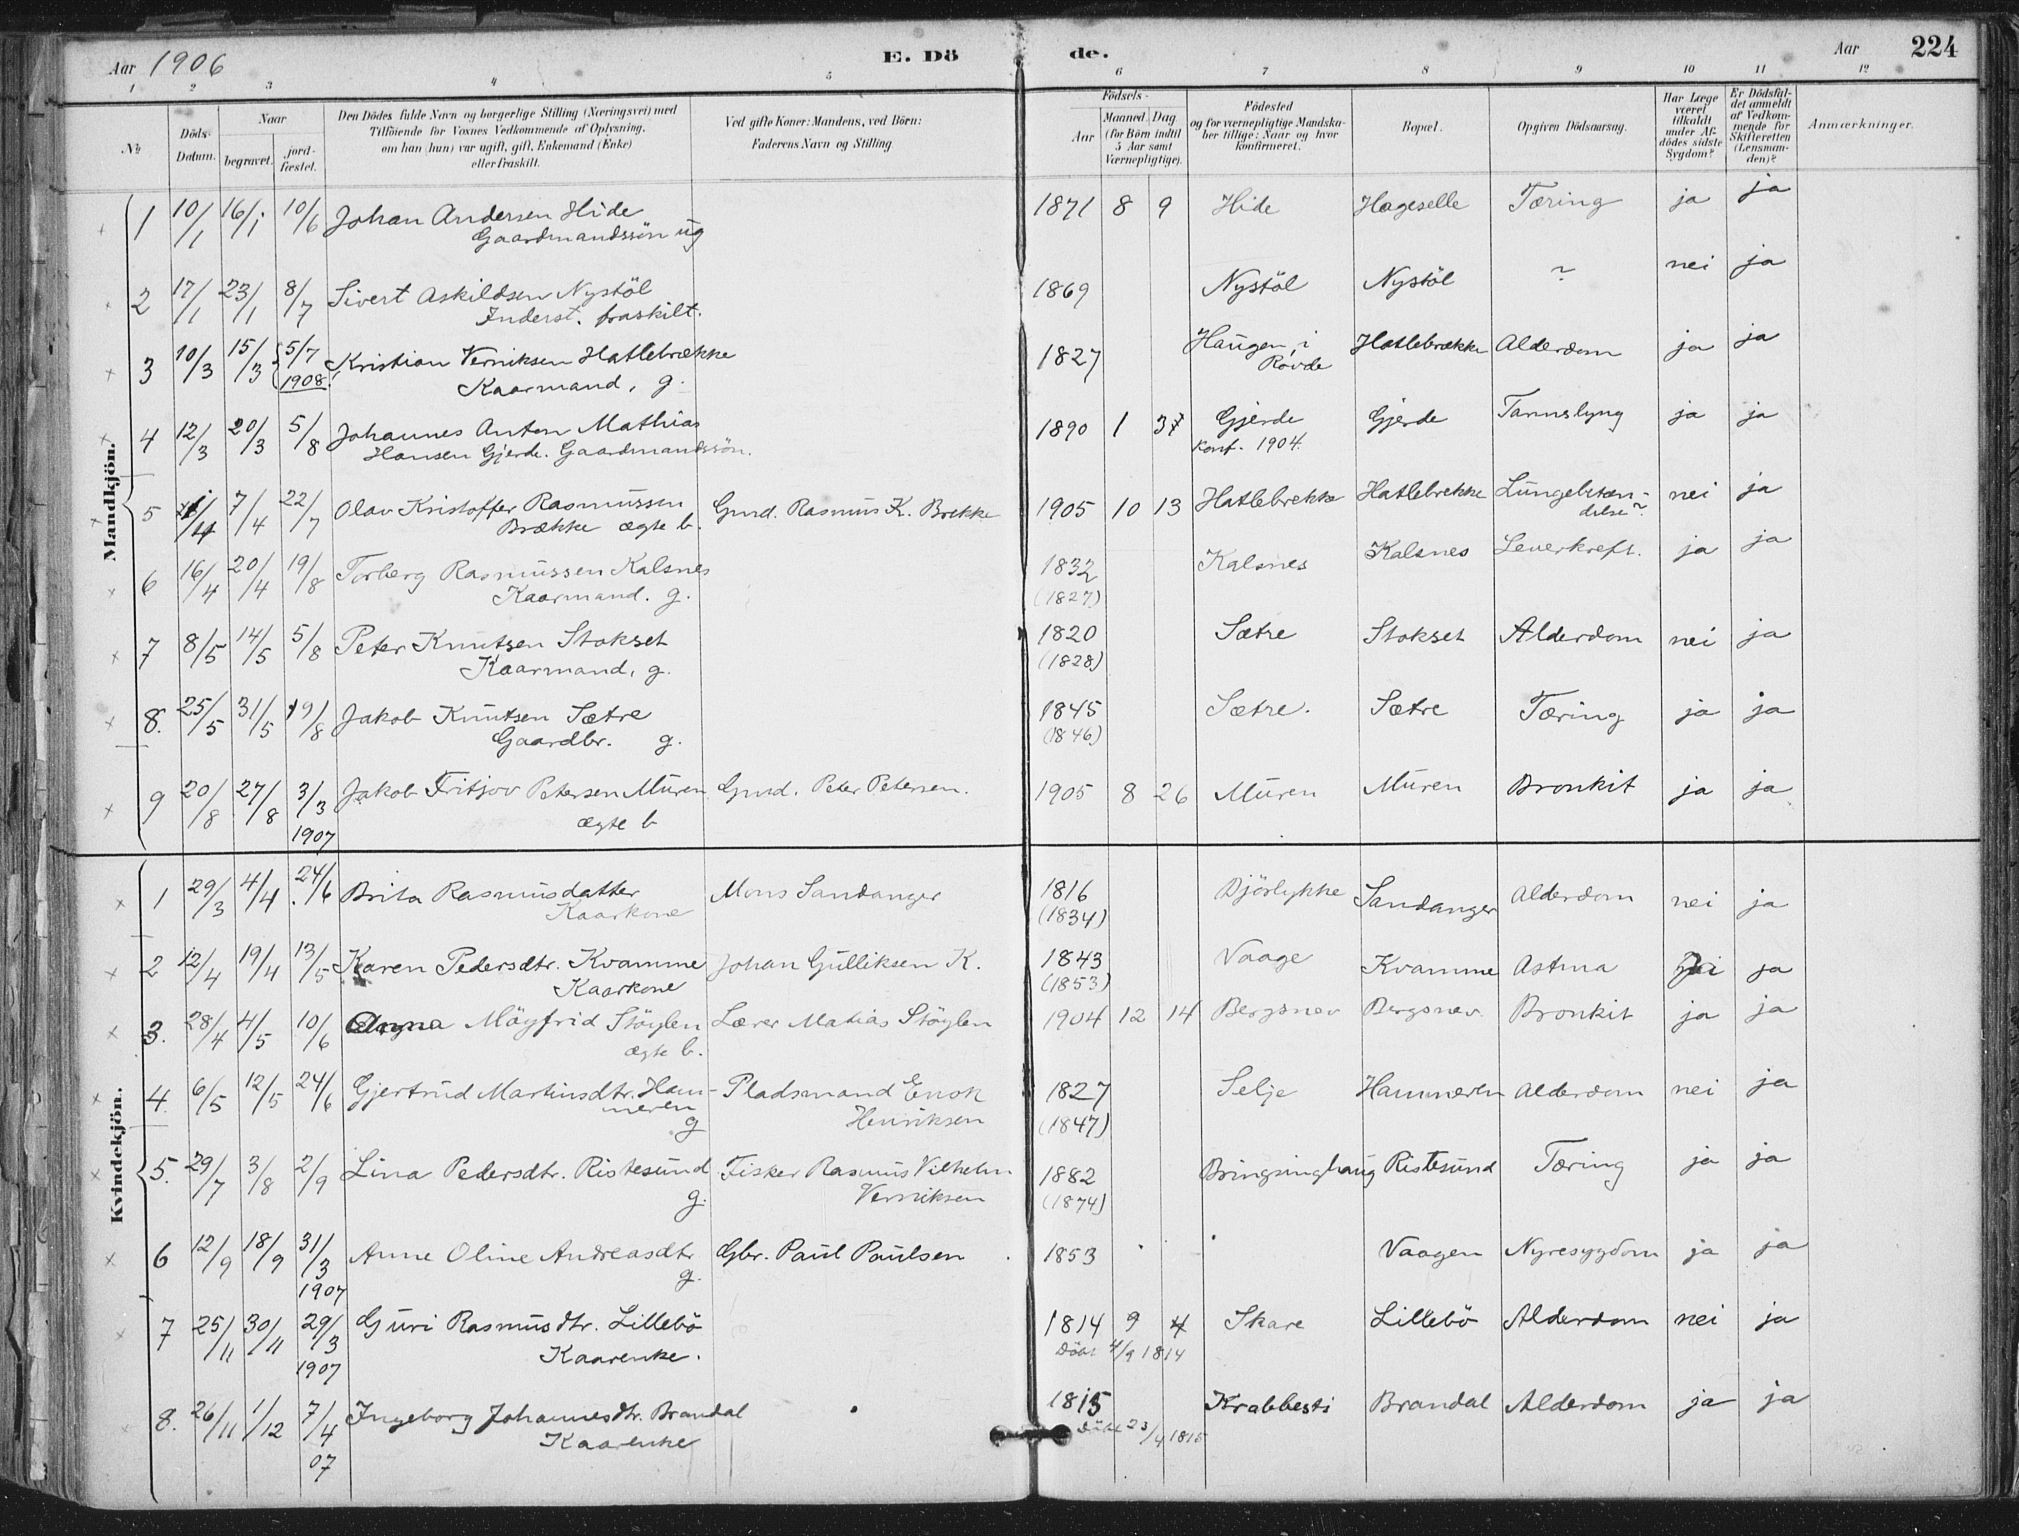 Aar 1906 E. Dö de. Aar 224
1 2 3 4 5 6 7 8 9 10 11 12
No. Döds-Datum. Naar begravet. jordfæstet. Den Dödes fulde Navn og borgerlige Stilling (Næringsvei) med Tilföiende for Voxnes Vedkommende af Oplysning, om han (hun) var ugift, gift, Enkemand (Enke) eller fraskilt. Ved gifte Koner: Mandens, ved Börn: Faderens Navn og Stilling. Födsels- Aar Maaned Dag (for Börn indtil 5 Aar samt Værnepligtige). Födested og for værnepligtige Mandskaber tillige: Naar og hvor konfirmeret. Bopæl. Opgiven Dödsaarsag. Har Læge været tilkaldt under Afdödes sidste Sygdom? Er Dödsfaldet anmeldt af Vedkommende for Skifteretten (Lensmanden)? Anmærkninger.
Mandkjön.
1 10/1 16/1 10/6 Johan Andersen Hide 1871 8 9 Hide Hageselle Tæring ja ja
Gaardmandssön ug
2 17/1 23/1 8/7 Sivert Askildsen Nystöl 1869 Nystöl Nystöl ~ nei ja
Inderst. fraskilt.
3 10/3 15/3 5/7 1908 Kristian Verniksen Hatlebrække 1827 Haugen i Rovde Hatlebrække Alderdom ja ja
Kaarmand, g.
4 12/3 20/3 5/8 Johannes Anton Mathias 1890 1 37 Gjerde Gjerde ja ja
Hansen Gjerde. Gaardmandssön. Konf. 1904.
5 1/4 7/4 22/7 Olav Kristoffer Rasmussen Gmd. Rasmus K. Brekke 1905 10 13 Hatlebrekke Hatlebrekke Lungebetæn- nei ja
Brække ægte b. delse~.
6 16/4 20/4 19/8 Torberg Rasmussen Kalsnes 1832 Kalsnes Kalsnes Leverkreft. ja ja
Kaarmand. g. (1827)
7 8/5 14/5 5/8 Peter Knutsen Stokset 1820 Sætre Stokset Alderdom nei ja
Kaarmand, g. (1828)
8. 25/5 31/5 19/8 Jakob Knutsen Sætre 1845 Sætre. Sætre Tæring ja ja
Gaardbr. g. (1846)
9 20/8 27/8 3/3 1907 Jakob Fritjov Petersen Muren Gmd. Peter Petersen. 1905 8 26 Muren Muren Bronkit ja ja
ægte b
Kvindekjön.
1 29/3 4/4 24/6 Brita Rasmusdatter Mons Sandanger 1816 Djörlykke Sandanger Alderdom nei ja
Kaarkone (1834)
2 12/4 19/4 13/5 Karen Pedersdtr. Kvamme Johan Gulliksen K. 1843 Vaage Kvamme Astma ja
Kaarkone (1853)
3. 28/4 4/5 10/6 Anna Möyfrid Stöylen Lærer Matias Stöylen 1904 12 14 Bergsnev Bergsnev. Bronkit ja ja
ægte b.
4. 6/5 12/5 24/6 Gjertrud Martinsdtr. Ham- Pladsmand Enok 1827 Selje Hammeren Alderdom nei ja
meren g Henriksen (1847)
5. 29/7 3/8 2/9 Lina Pedersdtr. Ristesund Fisker Rasmus Vilhelm 1882 Bringsinghaug Ristesund Tæring ja ja
g. Verniksen (1874)
6 12/9 18/9 31/3 1907 Anne Oline Andreasdtr Gbr. Paul Paulsen 1853 Vaagen Nyresygdom ja ja
g.
7 25/11 30/11 29/3 1907 Guri Rasmusdtr. Lillebö 1814 9 4 Skare Lillebö Alderdom nei ja
Kaarenke. 4/9 1814
8. 26/11 1/12 7/4 07 Ingeborg Johannesdtr. Brandal 1815 Krabbesti Brandal Alderdom ja ja
Kaarenke Döbt 23/4 1815